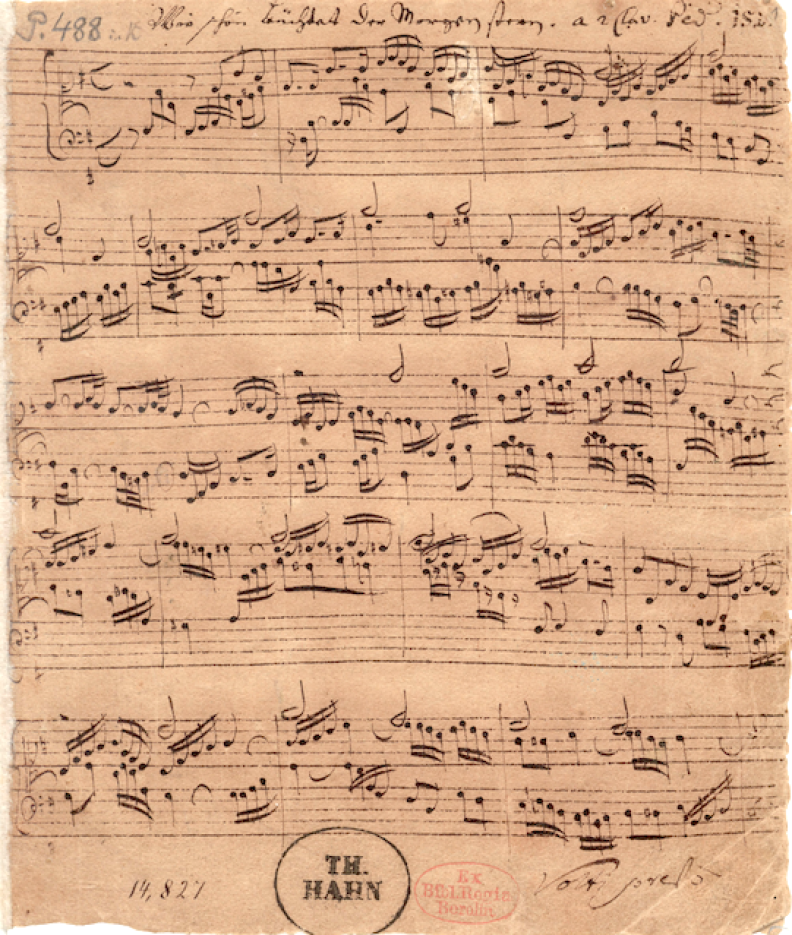 P. 488 Wie schön leüchtet der Morgenstern. a 2 Clav. Ped. ISB
14,827
TH.
HAHN
Ex
Bibl. Regia
Berolin.
Volti presto